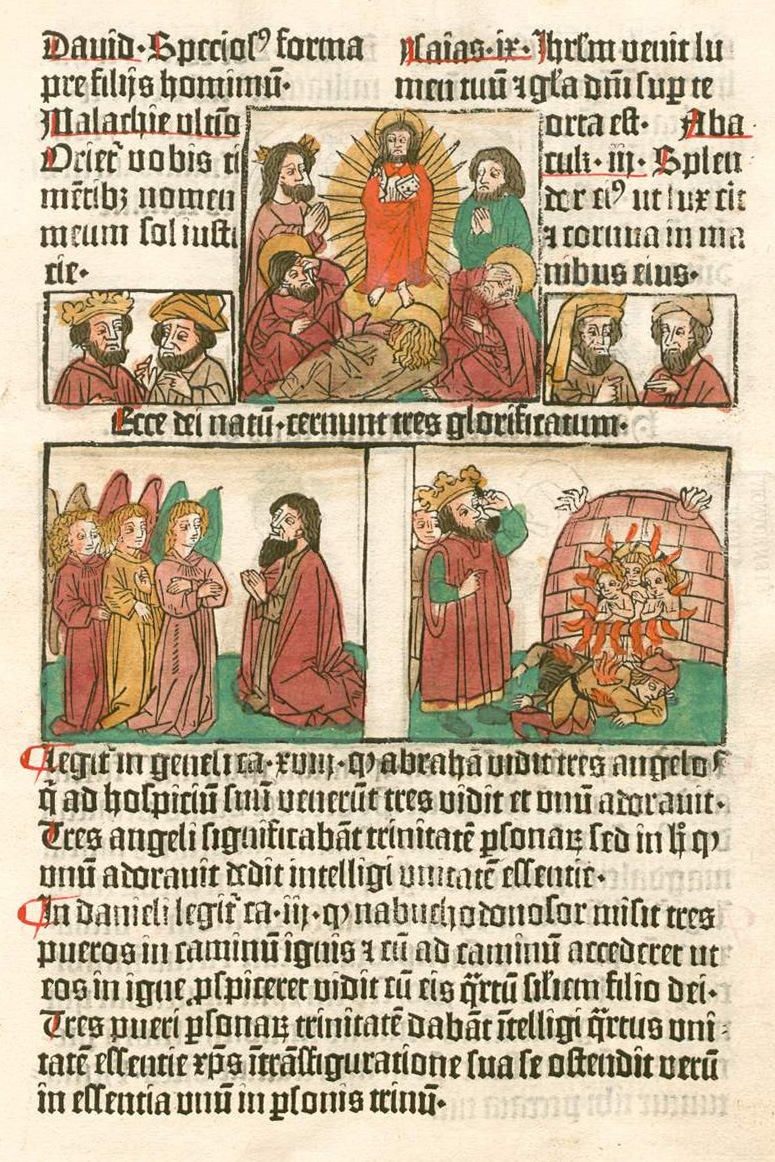 Dauid· Specios⁹ forma
pre filijs hominū·
Malachie vltiō
Oriet᷑ vobis ti
mētibꝫ nomen
meum sol iusti
cie·
Isaias·ix· Ihrłm venit lu
men tuū ⁊ gła dn̄i sup te
orta est· Aba
cuk·iij· Splen
dor ei⁹ ut lux eit
⁊ cornua in ma
nibus eius·
Ecce dei natū·cernunt tres glorificatum·
Legit᷑ in genesi ca·xviij·qꝫ abrahā vidit tres angelos
q̄ ad hospiciū suū venerūt tres vidit et vnū adorauit·
Tres angeli significabāt trinitatē ꝑsonaꝝ sed in h̄ qꝫ
vnū adorauit dedit intelligi vnitatē essentie·
In danieli legit᷑ ca·iij·qꝫ nabuchodonosor misit tres
pueros in caminū ignis ⁊ cū ad caminū accederet ut
eos in igne ꝑspiceret vidit cū eis q̄rtū siłem filio dei·
Tres pueri ꝑsonaꝝ trinitatē dabāt ītelligi q̄rtus vni
tatē essentie xp̄s ītrāsfiguratione sua se ostendit verū
in essentia vnū in ꝑsonis trinū·